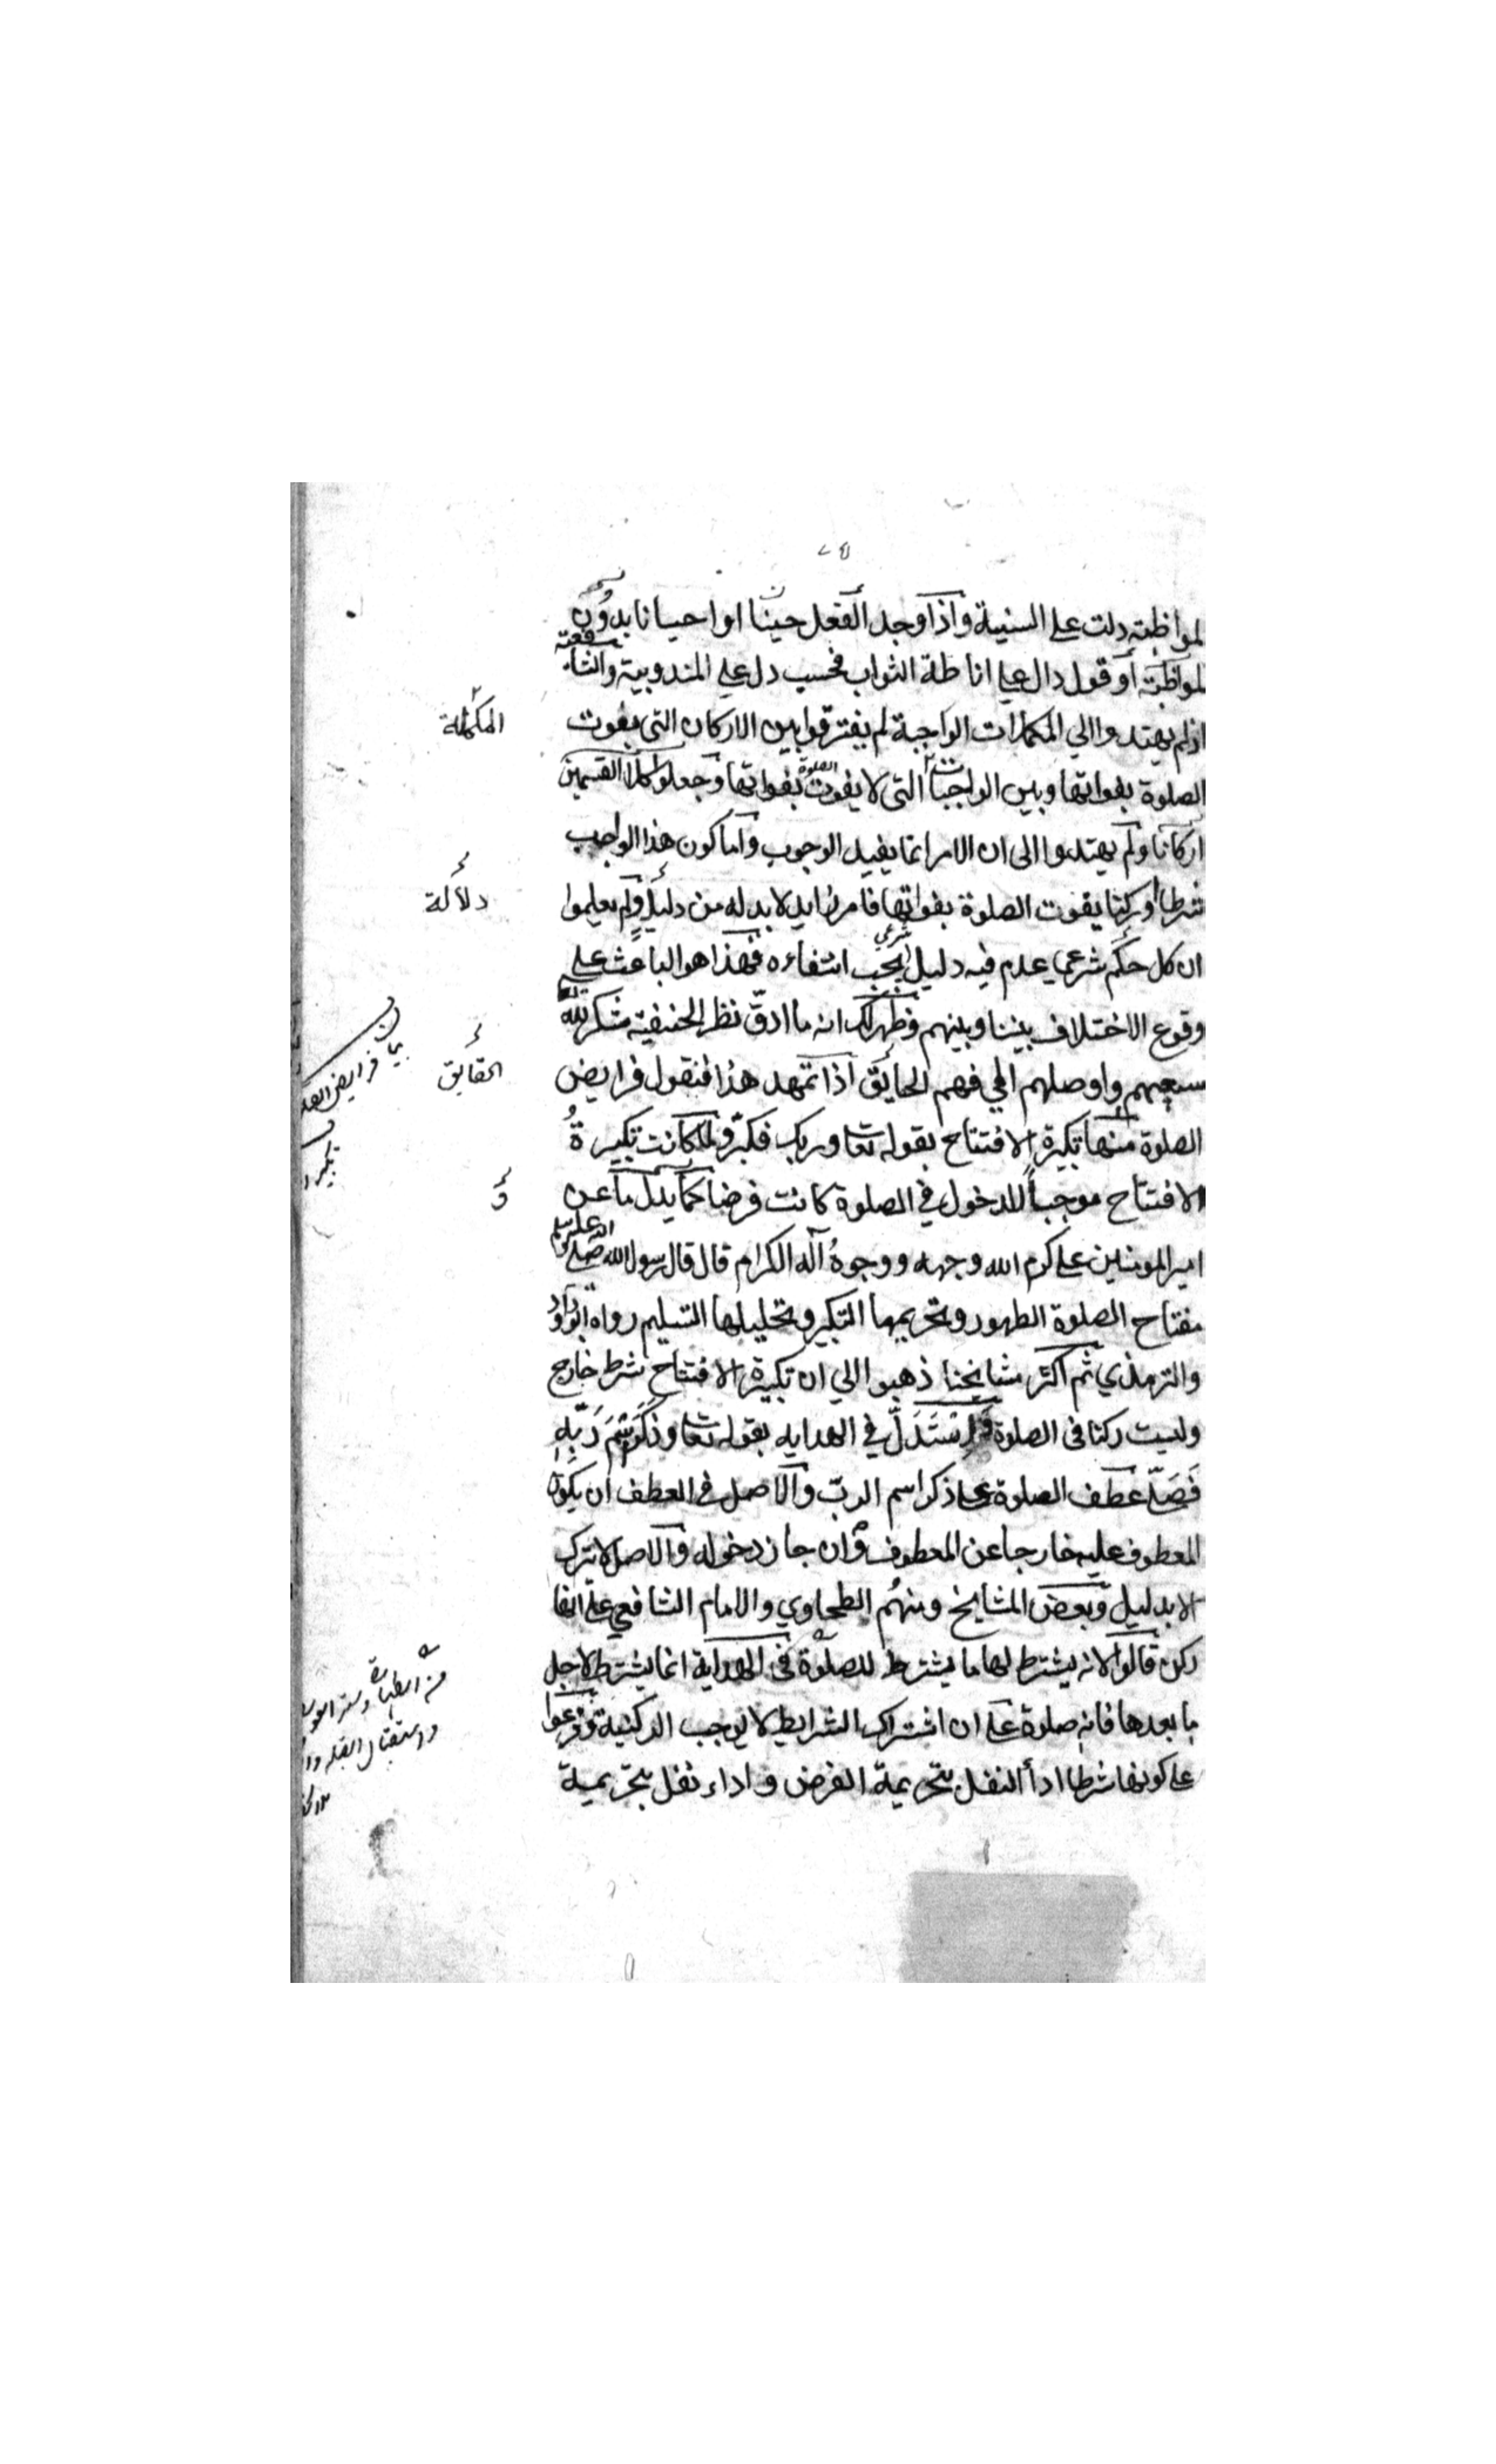 لمواظبته دلت على السنية واذا وجد الفعل حينا او احيانا بدون
لمواظبته او قول دال على اناطة الثواب فحسب دل على المندوبية والشافعية
اذ لم يهتدوا الي المكملات الواجبة لم يفترقوا بين الاركان التى يفوت
الصلوة بفواتها وبين الواجبات التى لا يفوت الصلوة بفواتها وجعلوا كلا القسمين
اركانا ولم يهتدوا الى ان الامر انما يفيد الوجوب واما كون هذا الواجب
شرطا او ركنا يفوت الصلوة بفواتها فامر زايد لا بد له من دليل ولم يعلموا
ان كل حكم شرعي عدم فيه دليل شرعي يجب انتفاءه فهذا هو الباعث على
وقوع الاختلاف بيننا وبينهم وظهر لك انه ما ادق نظر الحنفية شكر الله
سعيهم واوصلهم الي فهم الحايق اذا تمهد هذا فنقول فرايض
الصلوة منها تكبيرة الافتتاح بقوله تعا وربك فكبر ولما كانت تكبيرة
الافتتاح موجباً للدخول في الصلوة كانت فرضا كما يدل ما عن
امير المومنين على كرم الله وجهه ووجوه آله الكرام قال قال رسول الله صلى الله عليه وسلم
مفتاح الصلوة الطهور وتحريمها التكبير وتحليلها التسليم رواه ابو داود
والترمذي ثم اكثر مشايخنا ذهبوا الي ان تكبيرة الافتتاح شرط خارج
وليست ركنا فى الصلوة واستدل في الهدايه بقوله تعا وذكر اسم ربه
فصلى عطف الصلوة على ذكر اسم الرب والاصل في العطف ان يكون
المعطوف عليه خارجا عن المعطوف وان جاز دخوله والاصل لا يترك
الا بدليل وبعض المشايخ ومنهم الطحاوي والامام الشافعي على انها
ركن قالوا لانه يشترط لها ما يشترط للصلوة فى الهداية انما يشترط لاجل
ما بعدها فانه صلوة على ان اشتراك الشرايط لا يوجب الركنية وفرعوا
على كونها شرطا ادأ النفل بتحريمة الفرض واداء نفل بتحريمة
المكملة
دلالة
الحقايق
و
بيان فرايض
من الطهارة وستر
واستقبال القبلة